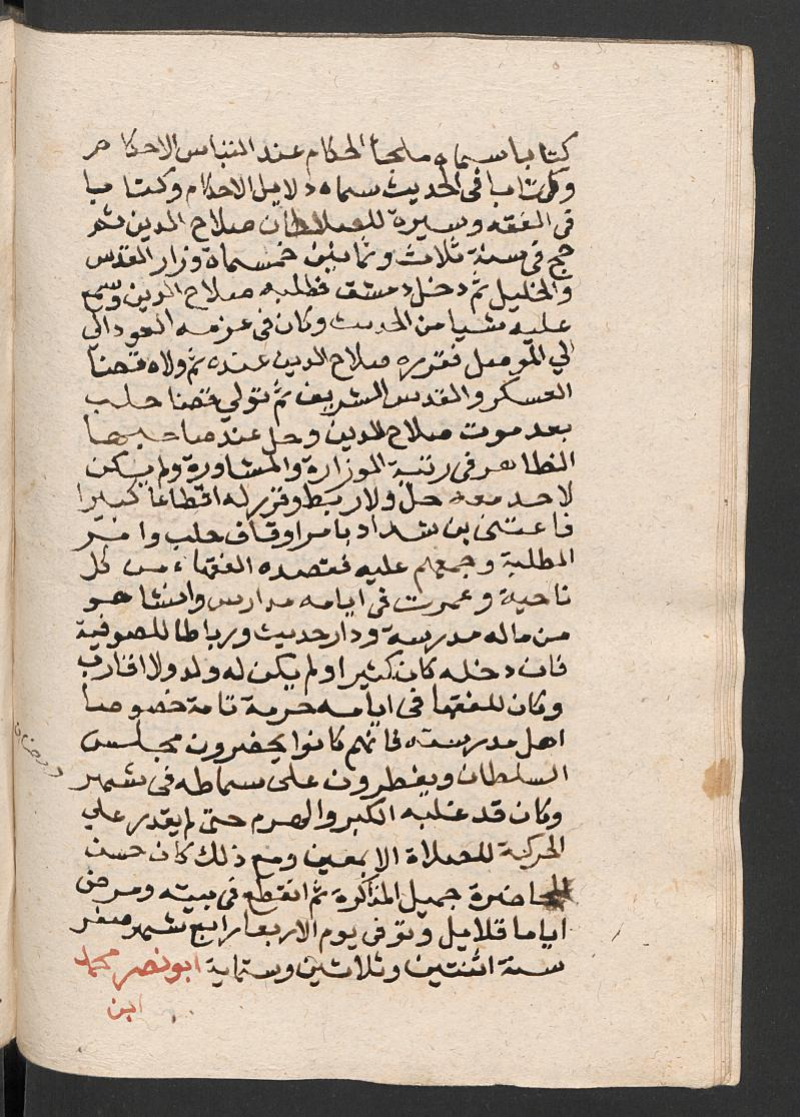 كتابا سماه ملجأ الحكام عند التباس الاحكام
وكتابا في الحديث سماه دلايل الاحكام وكتابا
في الفقه وسيرة للسلطان صلاح الدين ثم
حج في سنة ثلاث وثمانين خمسماة وزار القدس
والخليل ثم دخل دمشق فطلبه صلاح الدين وسمع
عليه شيا من الحديث وكان في عزمه العود الي
الي الموصل فقرره صلاح الدين عنده ثم ولاه قضا
العسكر والقدس الشريف ثم تولي قضا حلب
بعد موت صلاح الدين وحل عند صاحبها
الظاهر في رتبة الوزارة والمشاورة ولم يكن
لاحد معه حل ولا ربط وقرر له اقطاعا كبيرا
فاعتنى بن شداد بامر اوقاف حلب وامر
الطلبة وجمعهم عليه فقصده الفقهاء من كل
ناحية وعمرت في ايامه مدارس وانشا هو
من ماله مدرسة ودار حديث ورباطا للصوفية
فان دخله كان كثيرا ولم يكن له ولد ولا اقارب
وكان للفقها في ايامه حرمة تامة خصوصا
اهل مدرسته فانهم كانوا يحضرون مجلس
السلطان ويفطرون على سماطه في شهر
رمضان
وكان قد غلبه الكبر والهرم حتى لم يقدر علي
الحركة للصلاة الا بمعين ومع ذلك كان حسن
المحاضرة جميل المذاكرة ثم انقطع في بيته ومرض
اياما قلايل وتوفى يوم الاربعا رابع شهر صفر
سنة اثنتين وثلاثين وستماية ابو نصر محمد
ابن